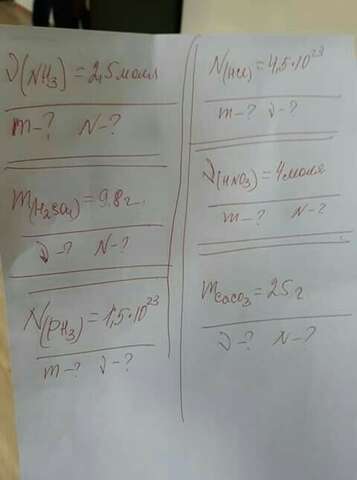 ν(NH₃) = 2,5 моля
m-? N-?
m(H₂SO₄) = 9,8 г.
ν-? N-?
N(PH₃) = 1,5·10²³
m-? ν-?
N(HCl) = 4,5·10²³
m-? ν-?
ν(HNO₃) = 4 моля
m-? N-?
mCaCO₃ = 25 г
ν-? N-?